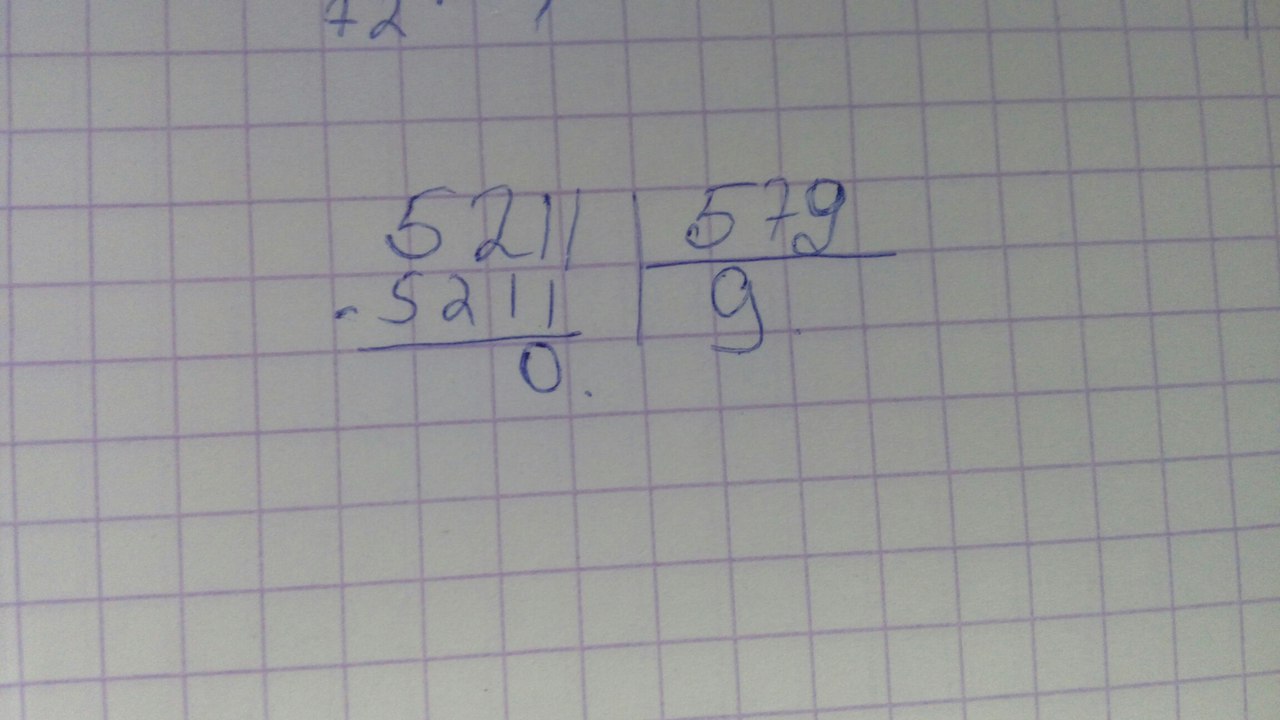 72
5211 579
- 5211 9
0.